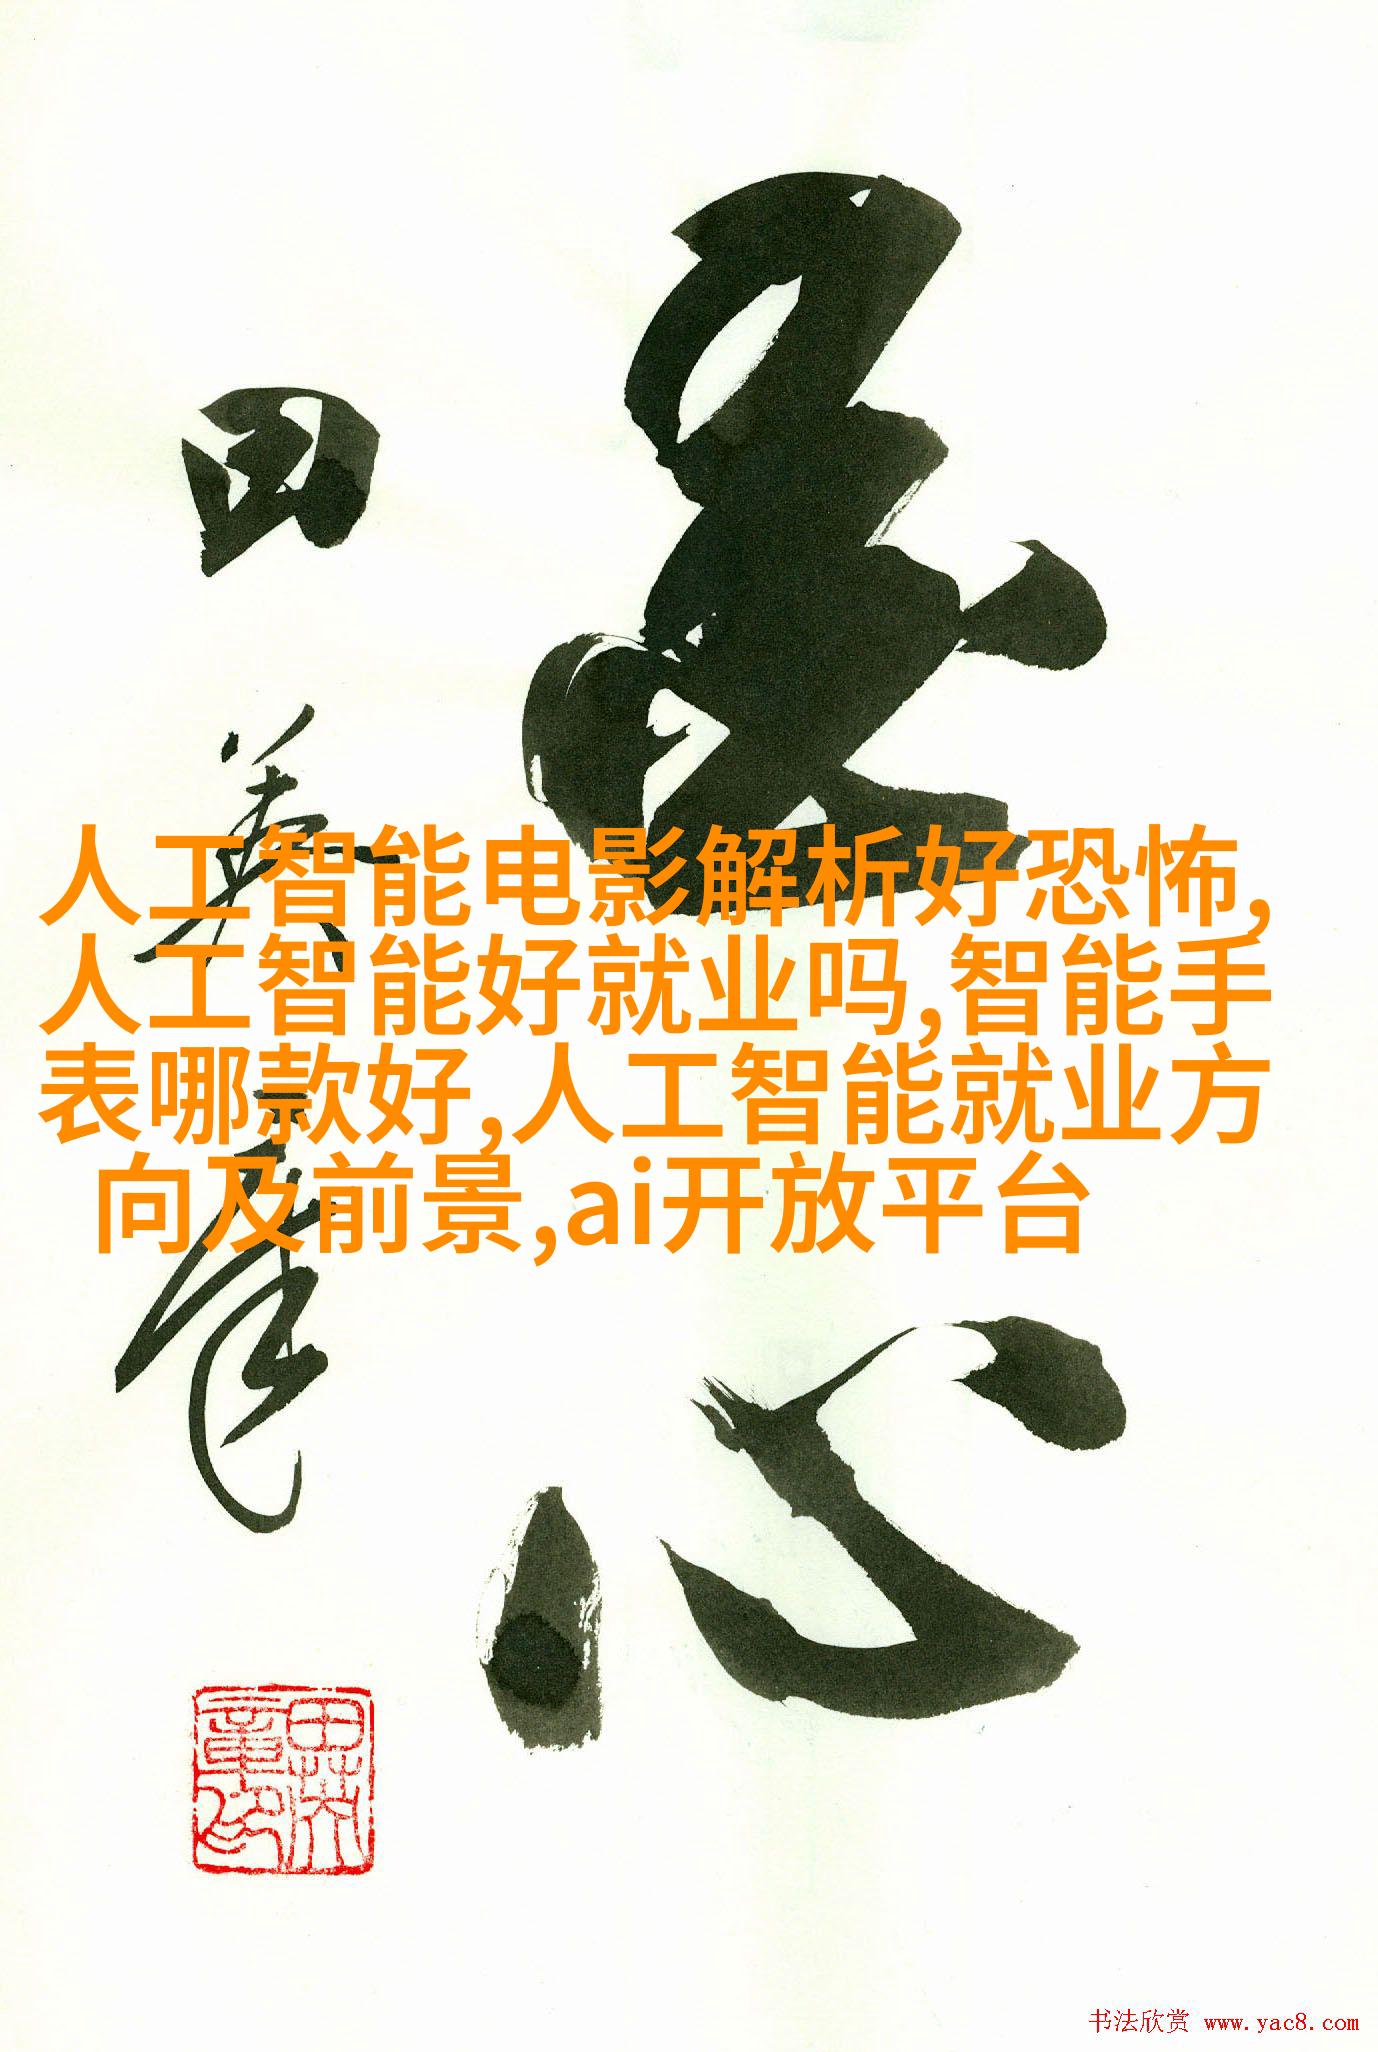 人工智能电影解析好恐怖,
人工智能好就业吗,智能手
表哪款好,人工智能就业方
向及前景,ai开放平台
心
田
英
章
书法欣赏 www.yac8.com